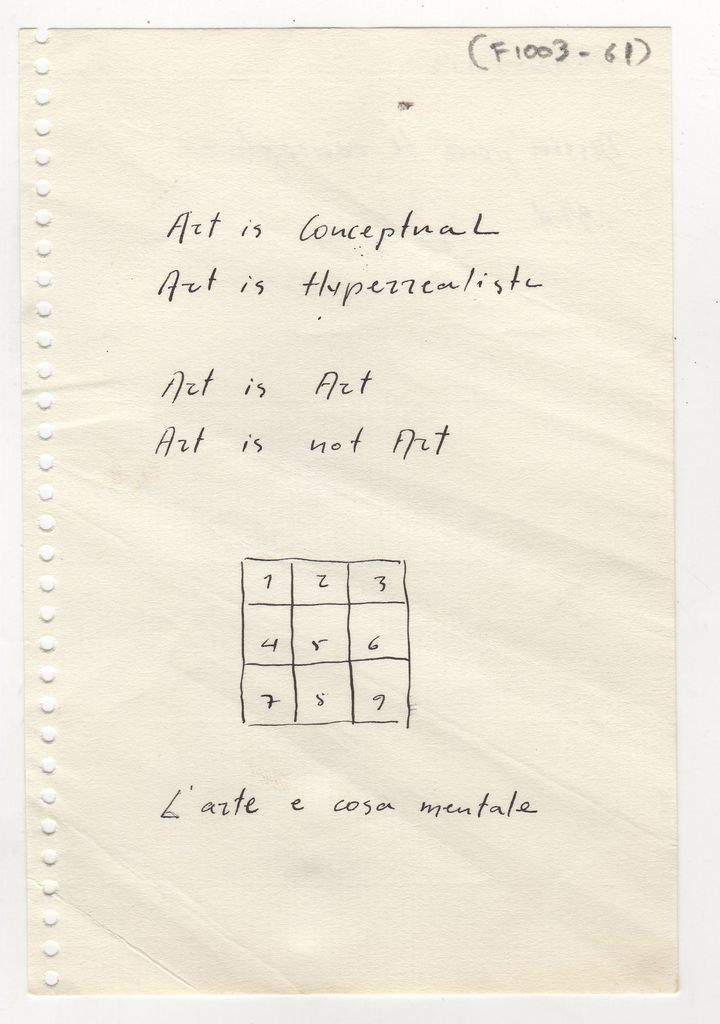 (F1003-61)
Art is Conceptual
Art is Hyperrealist
Art is Art
Art is not Art
1 2 3
4 5 6
7 8 9
L'arte e cosa mentale